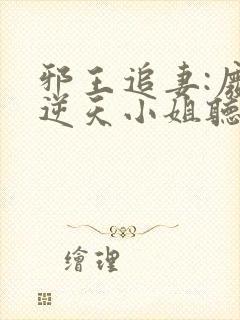 邪王追妻:廢
逆天小姐聽
繪理